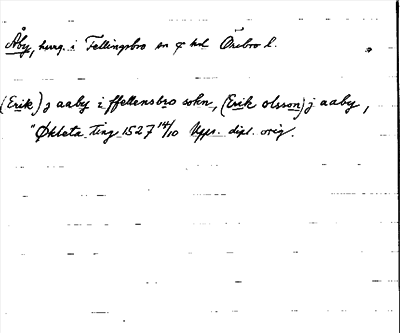 Åby, herrg. i Fellingsbro sn o hd Örebro l.
(Erik) j aaby i ffellensbro sokn, (Erik olsson) j aaby,
"Økbeta Ting 1527 14/10 Upps. dipl. orig.